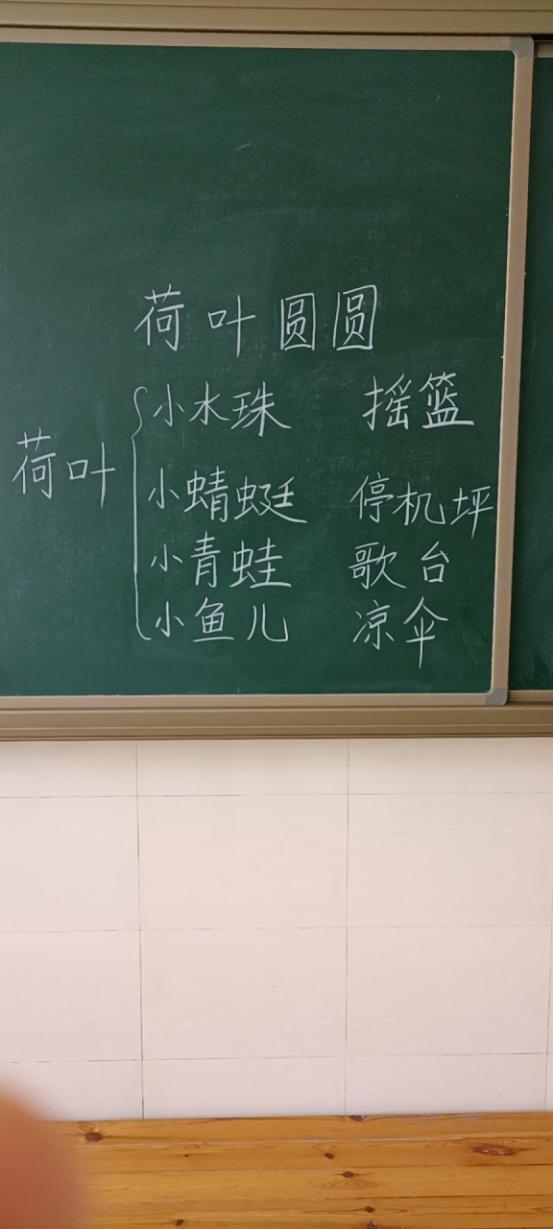 荷叶圆圆
荷叶
小水珠 摇篮
小蜻蜓 停机坪
小青蛙 歌台
小鱼儿 凉伞